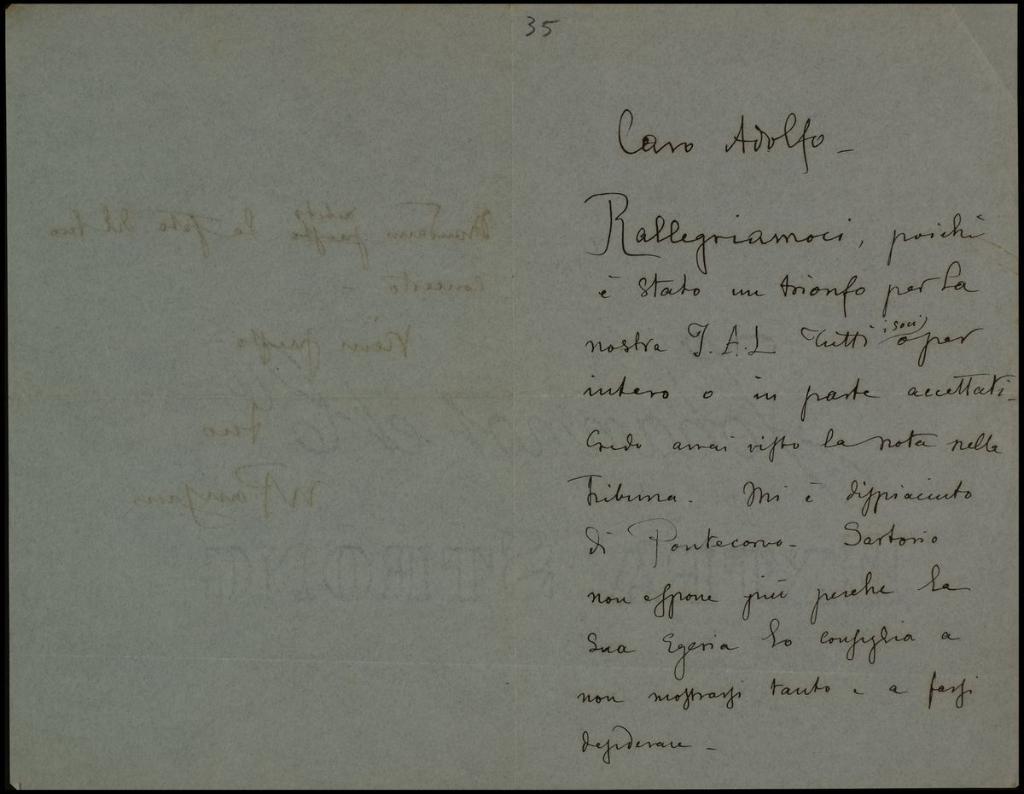 35
Caro Adolfo –
Rallegriamoci, poichè
è stato un trionfo per la
nostra I.A.L Tutti i soci o per
intero o in parte accettati.
Credo avrai visto la nota nella
Tribuna. Mi è dispiaciuto
di Pontecorvo – Sartorio
non espone più perche la
sua Egeria lo consiglia a
non mostrarsi tanto e a farsi
desiderare –